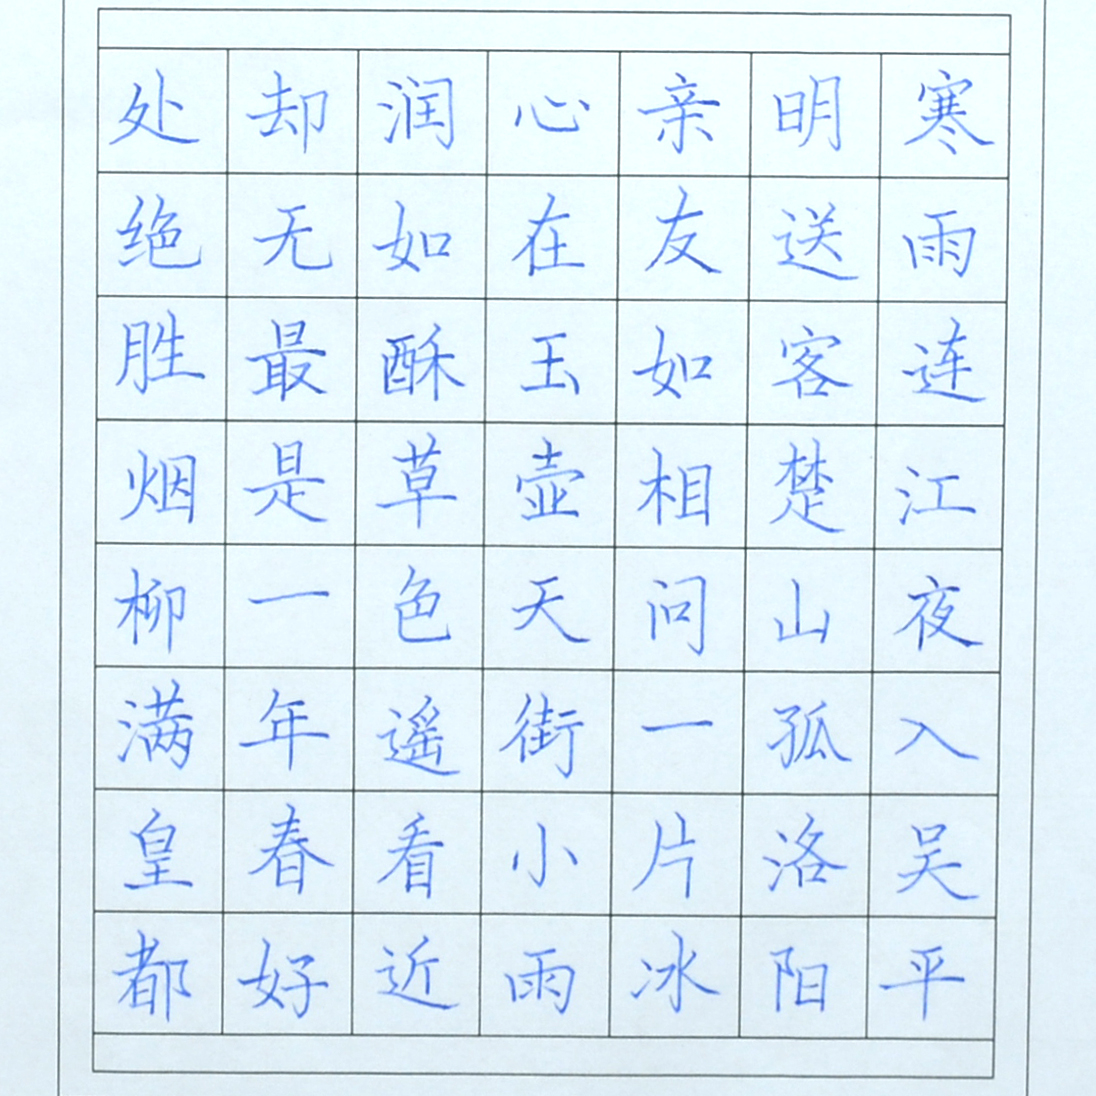 寒雨连江夜入吴平
明送客楚山孤洛阳
亲友如相问一片冰
心在玉壶天街小雨
润如酥草色遥看近
却无最是一年春好
处绝胜烟柳满皇都